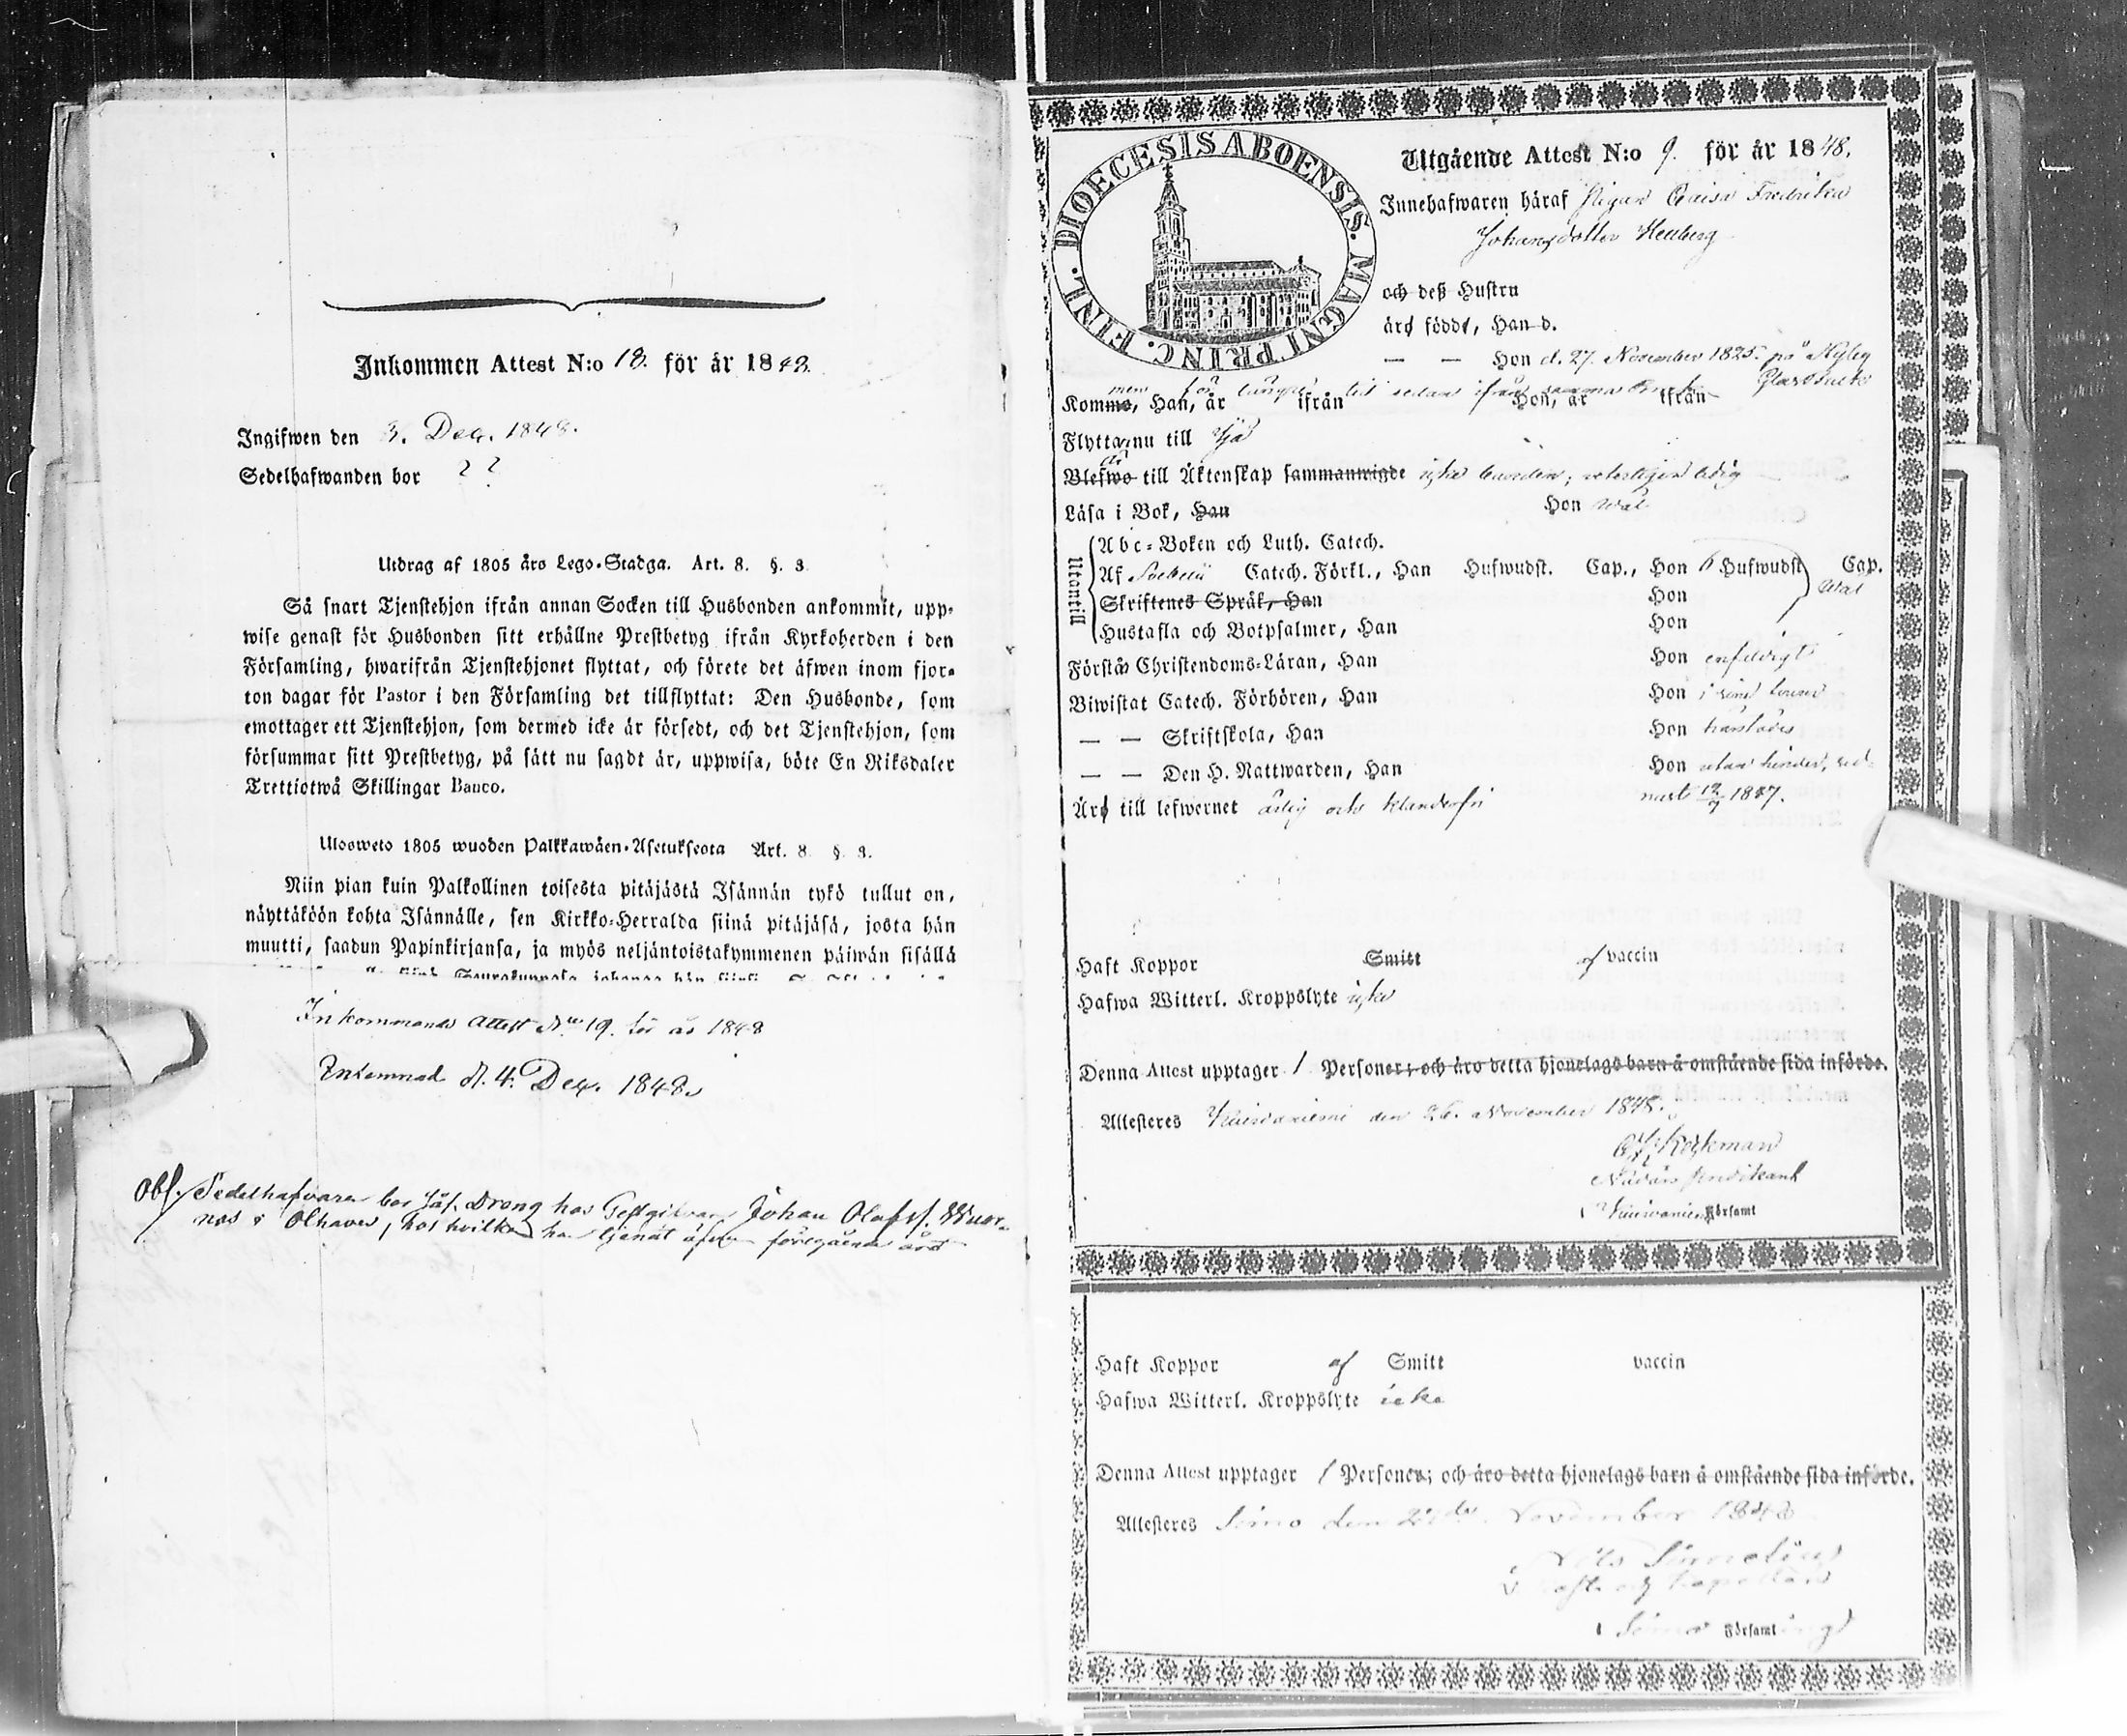 Inkommen Attest N:o 18. för år 1848.
Ingifwen den 3. Dec. 1848.
Sedelhafwanden bor ? ?
Utdrag af 1805 års Lego-Stadga. Art. 8. §. 3
Så snart Tjenstehjon ifrån annan Socken till Husbonden ankommit, upp-
wise genast för Husbonden sitt erhållne Prestbetyg ifrån Kyrkoherden i den
Församling, hwarifrån Tjenstehjonet flyttat, och förete det äfwen inom fjor-
ton dagar för Pastor i den Församling det tillflyttat: Den Husbonde, som
emottager ett Tjenstehjon, som dermed icke är försedt, och det Tjenstehjon, som
försummar sitt Prestbetyg, på sätt nu sagdt är, uppwisa, böte En Riksdaler
Trettiotwå Skillingar Banco.
Ulosweto 1805 wuoden Palkkawäen-Asetuksesta Art. 8 §. 3.
Niin pian kuin Palkollinen toisesta pitäjästä Isännän tykö tullut on,
näyttäköön kohta Isännälle, sen Kirkko-Herralda siinä pitäjäsä, josta hän
muutti, saadun Papinkirjansa, ja myös neljäntoistakymmenen päiwän sisällä
Inkommande Attest No 19. för år 1848
Inlemnad d. 4. Dec. 1848.
Obs. Sedelhafvaren bor såf. Dreng hos Gestgifvaren Johan Olofss. Wuor-
nos i Olhava, hos hvilken han tjenat äfven föregående året
DIOECESIS ABOENSIS. MAGNI PRINC. FINL.
Utgående Attest N:o 9. för år 1848.
Innehafwaren häraf Pigan Caisa Fredrika
Johansdotter Heuberg
och deß Hustru
äro född, Han d.
— — Hon d. 27. November 1825. på Nyby
Glasbruk
men för längre tid sedan ifrån samma bruk
Komma, Han, är ifrån Hon, är ifrån
Flyttar nu till Ijo
är
Blefwo till Äktenskap sammanwigde icke bunden, veterligen ledig
Läsa i Bok, Han Hon wäl
Utantill
Abc-Boken och Luth. Catech.
Af Svebelii Catech. Förkl., Han Hufwudst. Cap., Hon 6 Hufwudst Cap.
Wäl
Skriftenes Språk, Han Hon
Hustafla och Botpsalmer, Han Hon
Förstår Christendoms-Läran, Han Hon enfaldigt
Biwistat Catech. Förhören, Han Hon i sin tour
— — Skriftskola, Han Hon härstädes
— — Den H. Nattwarden, Han Hon utan hinder, sed-
nast 12/7 1847.
Äro till lefwernet ärlig och klanderfri
Haft Koppor Smitt af vaccin
Hafwa Witterl. Kroppslyte icke
Denna Attest upptager 1 Personer; och äro detta hjonelags barn å omstående sida införde.
Attesteres Kuivaniemi den 26. November 1848.
Keckman
Nådårs Predikant
i Kuivaniemi Församl
Haft Koppor af Smitt vaccin
Hafwa Witterl. Kroppslyte icke
Denna Attest upptager 1 Personer; och äro detta hjonelags barn å omstående sida införde.
Attesteres Simo den November 1848
Nils
Kapellan
i Simo Församling